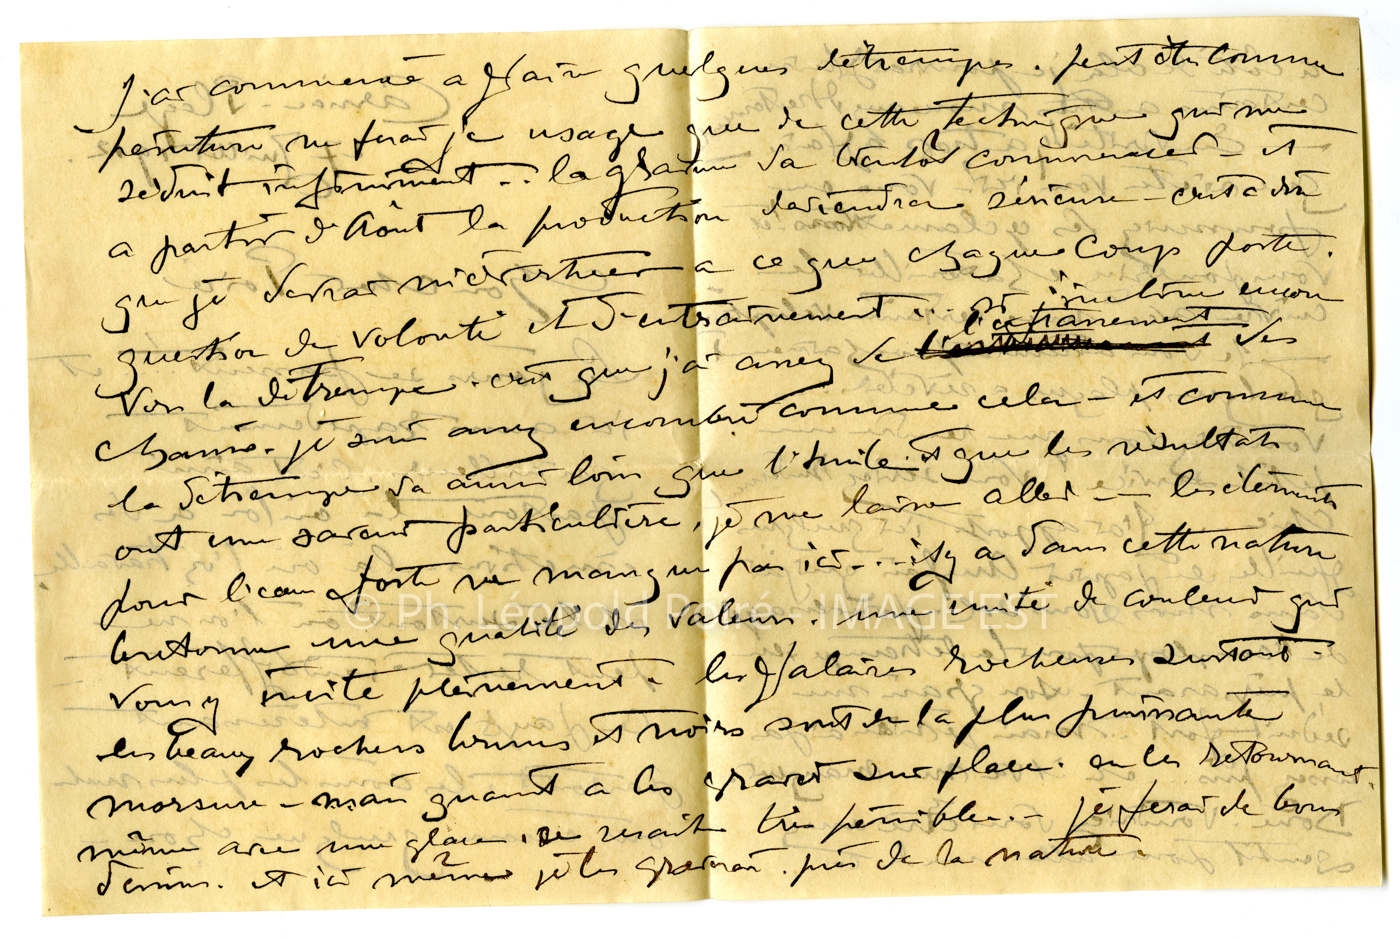 j'ai commencé a faire quelques détrempes. peut être comme
peinture ne ferai je usage que de cette technique qui me
séduit infiniment.. la gravure va bientôt commencer - et
a partir d'Août la production deviendra sérieuse - c'est à dire
que je devrai m'évertuer a ce que chaque coup porte.
question de volonté et d'entrainement... si j'incline encore
vers la détrempe. c'est que j'ai assez de l'entrainement des
chassis. je suis assez encombré comme cela - et comme
la détrempe va aussi loin que l'huile et que les résultats
ont une saveur particulière, je me laisse aller - les éléments
pour l'eau forte ne manque pas ici... il y a dans cette nature
bretonne une qualité des valeurs. une unité de couleur qui
vous y invite pleinement - les falaises rocheuses surtout -
les beaux rochers bruns et noirs sont de la plus puissante
morsure - mais quant a les graver sur place. en les retournant
même avec une glace, ce serait très pénible. - je ferai de bons
dessins. et ici même je les graverai. près de la nature.
© Ph. Léopold Poiré - IMAGE'EST